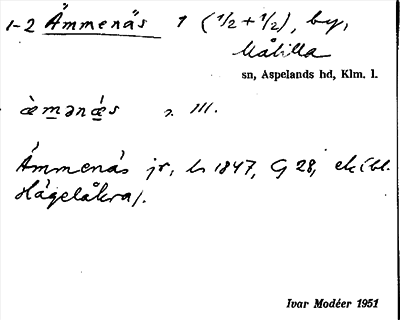 1-2 Ämmenäs 1 (1/2 + 1/2), by,
Målilla
sn, Aspelands hd, Klm. l.
æ̀mənǽs 2. III.
Ämmenäs jr, ls 1847, G 28, ek (bl.
Hagelåkra).
Ivar Modéer 1951